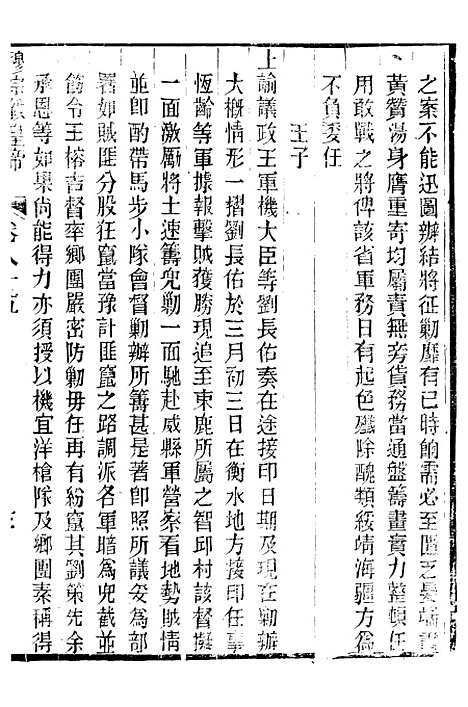 之案不能迅圖辦結將征勦靡有已時餉需必至匱乏晏端書
黃贊湯身膺重寄均屬責無旁貸務當通盤籌畫實力整頓任
用敢戰之將俾該省軍務日有起色殲除醜類綏靖海疆方爲
不負委任
壬子
上諭議政王軍機大臣等劉長佑奏在途接印日期及現在勦辦
大概情形一摺劉長佑於三月初三日在衡水地方接印任事
恆齡等軍據報擊賊獲勝現追至束鹿所屬之智邱村該督擬
一面激厲將士速籌兜勦一面馳赴威縣軍營察看地勢賊情
並即酌帶馬步小隊會督勦辦所籌甚是著即照所議妥爲部
署如賊匪分股狂竄當豫計匪竄之路調派各軍暗爲兜截並
飭令王榕吉督率鄉團嚴密防勦毋任再有紛竄其劉策先余
承恩等如果尚能得力亦須授以機宜洋槍隊及鄉團素稱得
穆宗毅皇帝 卷八十五